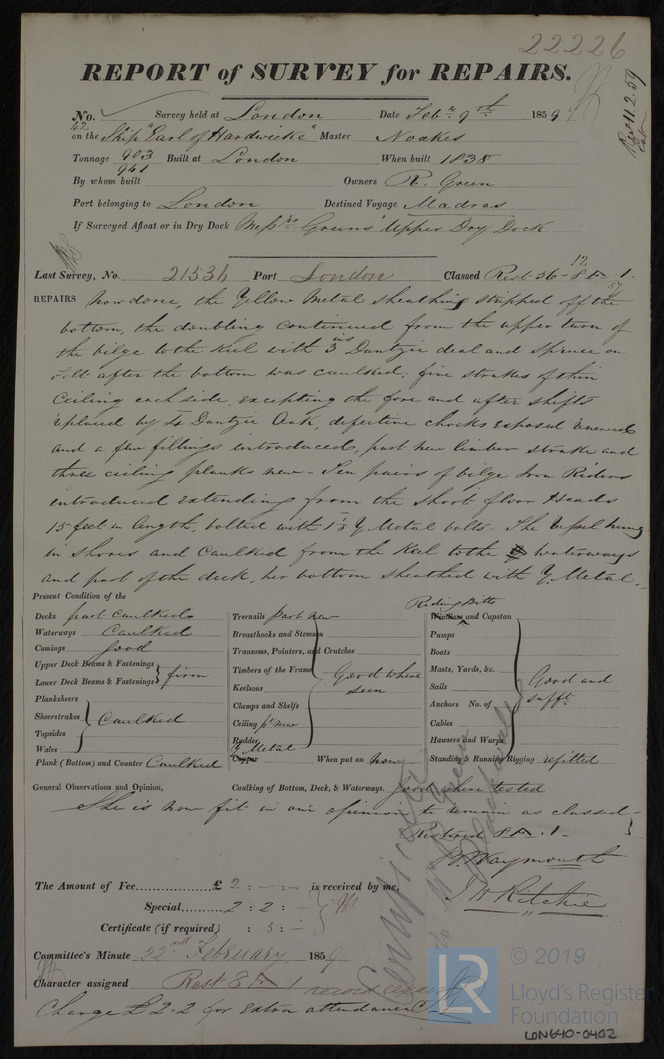 22226
REPORT of SURVEY for REPAIRS.
Rec 11.2.59
No. 42 Survey held at London Date Feby 9th 1859
on the Ship "Earl of Hardwicke" Master Noakes
Tonnage 903 Built at London When built 1838
961
By whom built Owners R. Green
Port belonging to London Destined Voyage Madras
If Surveyed Afloat or in Dry Dock Messrs Greens' Upper Dry Dock
Last Survey, No. 21536 Port London Classed Rest. 56-8 A .1.
12
57
REPAIRS Now done, the Yellow Metal sheathing stripped off the
bottom, the doubling continued from the upper turn of
the bilge to the Keel with 3 ins Dantzic deal and Spruce on
Felt after the bottom was caulked; five strakes of thin
Ceiling each side, excepting the fore and after shifts
replaced by Dantzic Oak, defective chocks exposed renewed
and a few fillings introduced, part new limber strake and
three ceiling planks new - Ten pairs of bilge Iron Riders
introduced extending from the short floor Heads
15 feet in length, bolted with 1⅛ Y. Metal bolts - The Vessel hung
in shores and Caulked from the Keel to the waterways
and part of the deck, her bottom sheathed with Y. Metal.
Present Condition of the
Decks part caulked
Waterways Caulked
Comings good
Upper Deck Beams & Fastenings
Lower Deck Beams & Fastenings } firm
Planksheers
Sheerstrakes
Topsides
Wales } Caulked
Plank (Bottom) and Counter Caulked
Treenails part new
Breasthooks and Stemson
Transoms, Pointers, and Crutches
Timbers of the Frame
Keelsons
Clamps and Shelfs
Ceiling pt new
Rudder
} Good where seen
Y. Metal
Copper When put on now
Riding Bitts
Windlass and Capstan
Pumps
Boats
Masts, Yards, &c.
Sails
Anchors No. of
Cables
Hawsers and Warps
} Good and sufft
Standing & Running Rigging refitted
General Observations and Opinion, Caulking of Bottom, Deck, & Waterways. good where tested
She is now fit in our opinion to remain as classed -
Restored 8 A .1-
H. Waymouth
J H Ritchie
Certificate
to Mr Green
Blackwall
The Amount of Fee £ 2 : - : - is received by me,
Special 2 : 2 : -
Certificate (if required) : 5 : -
Committee's Minute 22nd February 1859
Character assigned Rest 8 A 1
Charge £2-2 for extra attendance
LR
© 2019
Lloyd's Register
Foundation
LON640-0402